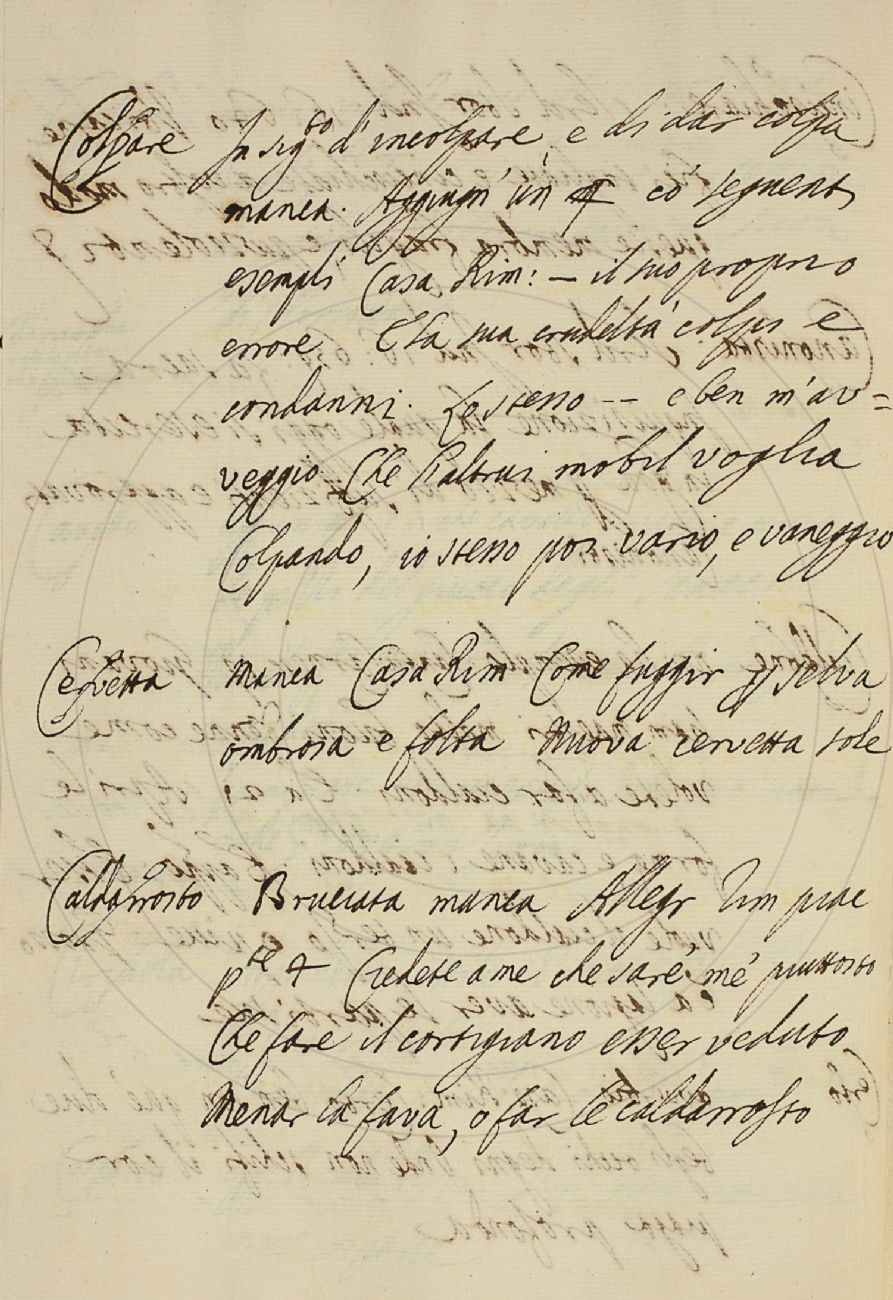 Colpare In sig.to d'incolpare e di dar colpa
manca. Aggiugn' un § co' seguenti
esempli Casa Rim: — il suo proprio
errore E la sua crudeltà colpi e
condanni. Lo stesso -- e ben m'av=
veggio Che l'altrui mobil voglia
Colpando, io stesso poi vario, e vaneggio
Cervetta manca Casa Rim Come fuggir p selva
ombrosa e folta Nuova cervetta sole
Caldarrosto Bruciata manca Allegr Rim piac
p.te 4 Credete a me che sare' me' piuttosto
Che fare il cortigiano esser veduto
Menar la fava, o far le caldarrosto